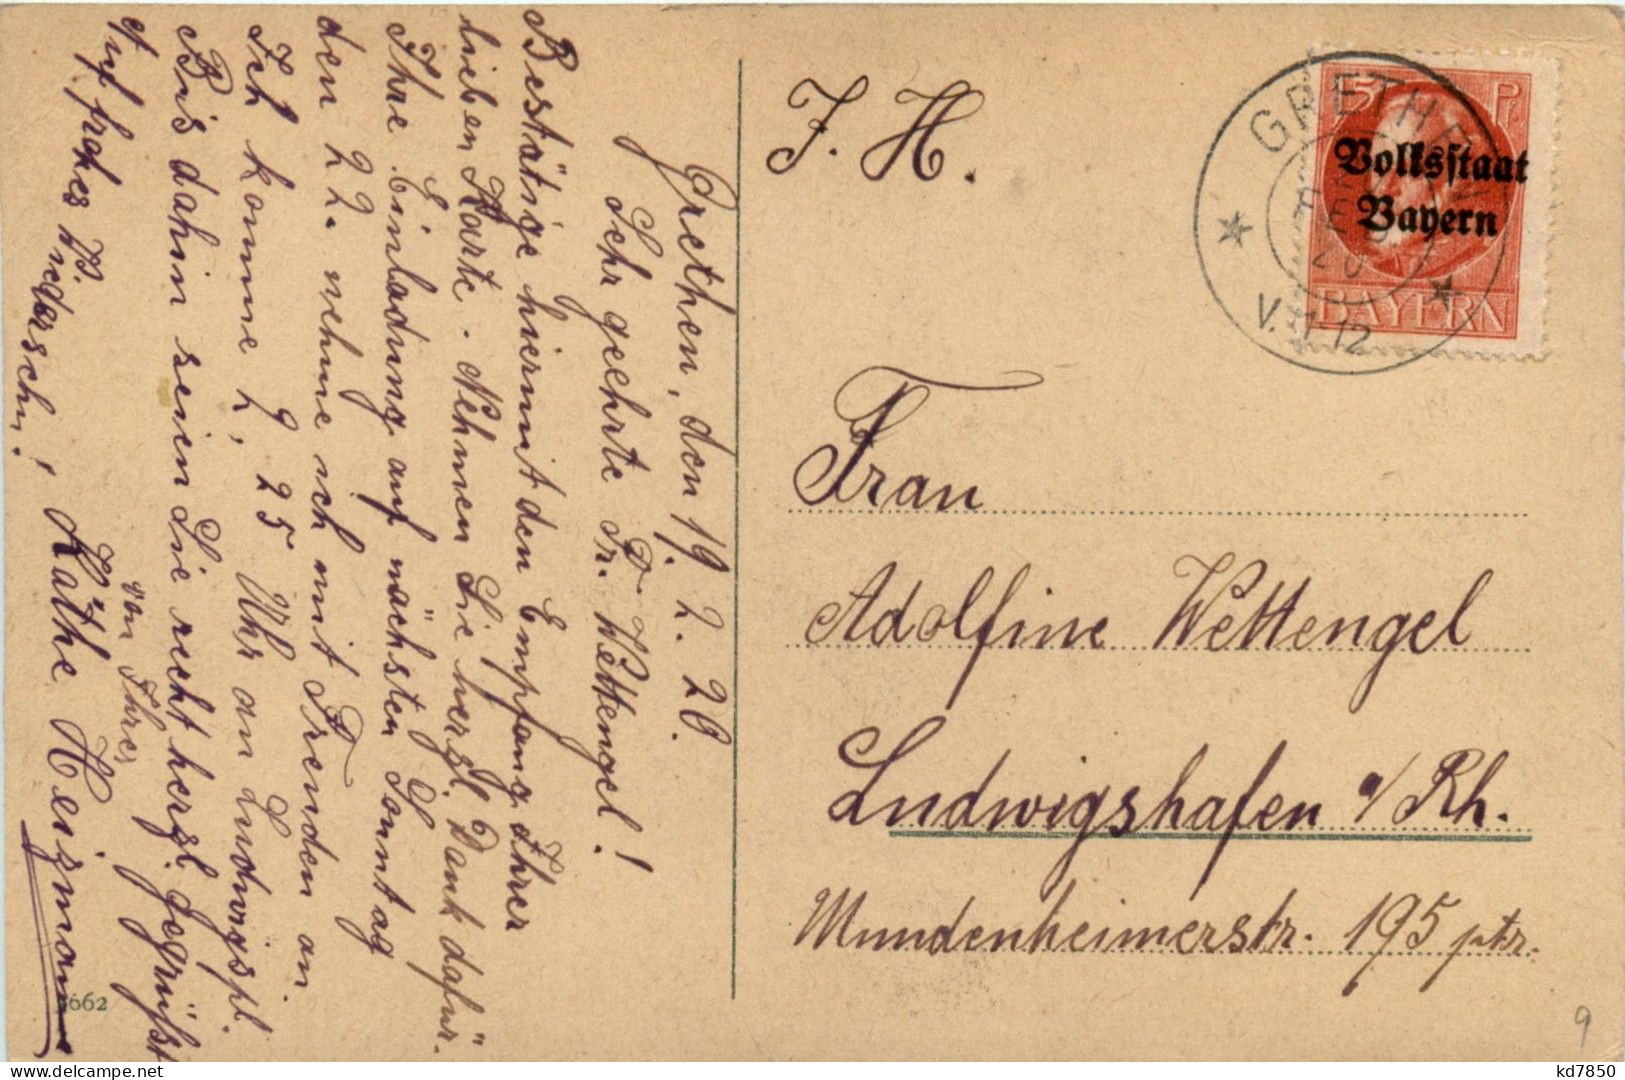 Grethen, den 19. 2. 20.
Sehr geehrte Fr. Wettengel!
Bestätige hiermit den Empfang Ihrer
lieben Karte. Nehmen Sie herzl. Dank dafür.
Ihre Einladung auf nächsten Sonntag
den 22. nehme ich mit Freuden an.
Ich komme 2,25 Uhr an Ludwigspl.
Bis dahin seien Sie recht herzl. gegrüßt
von Ihrer
Käthe Heizmann
Auf frohes Wiedersehn!
3662
J. H.
GRETHEN
20
V. 11-12
15 P.
Volksstaat
Bayern
BAYERN
Frau
Adolfine Wettengel
Ludwigshafen a/Rh.
Mundenheimerstr. 195 ptr.
9
kd7850